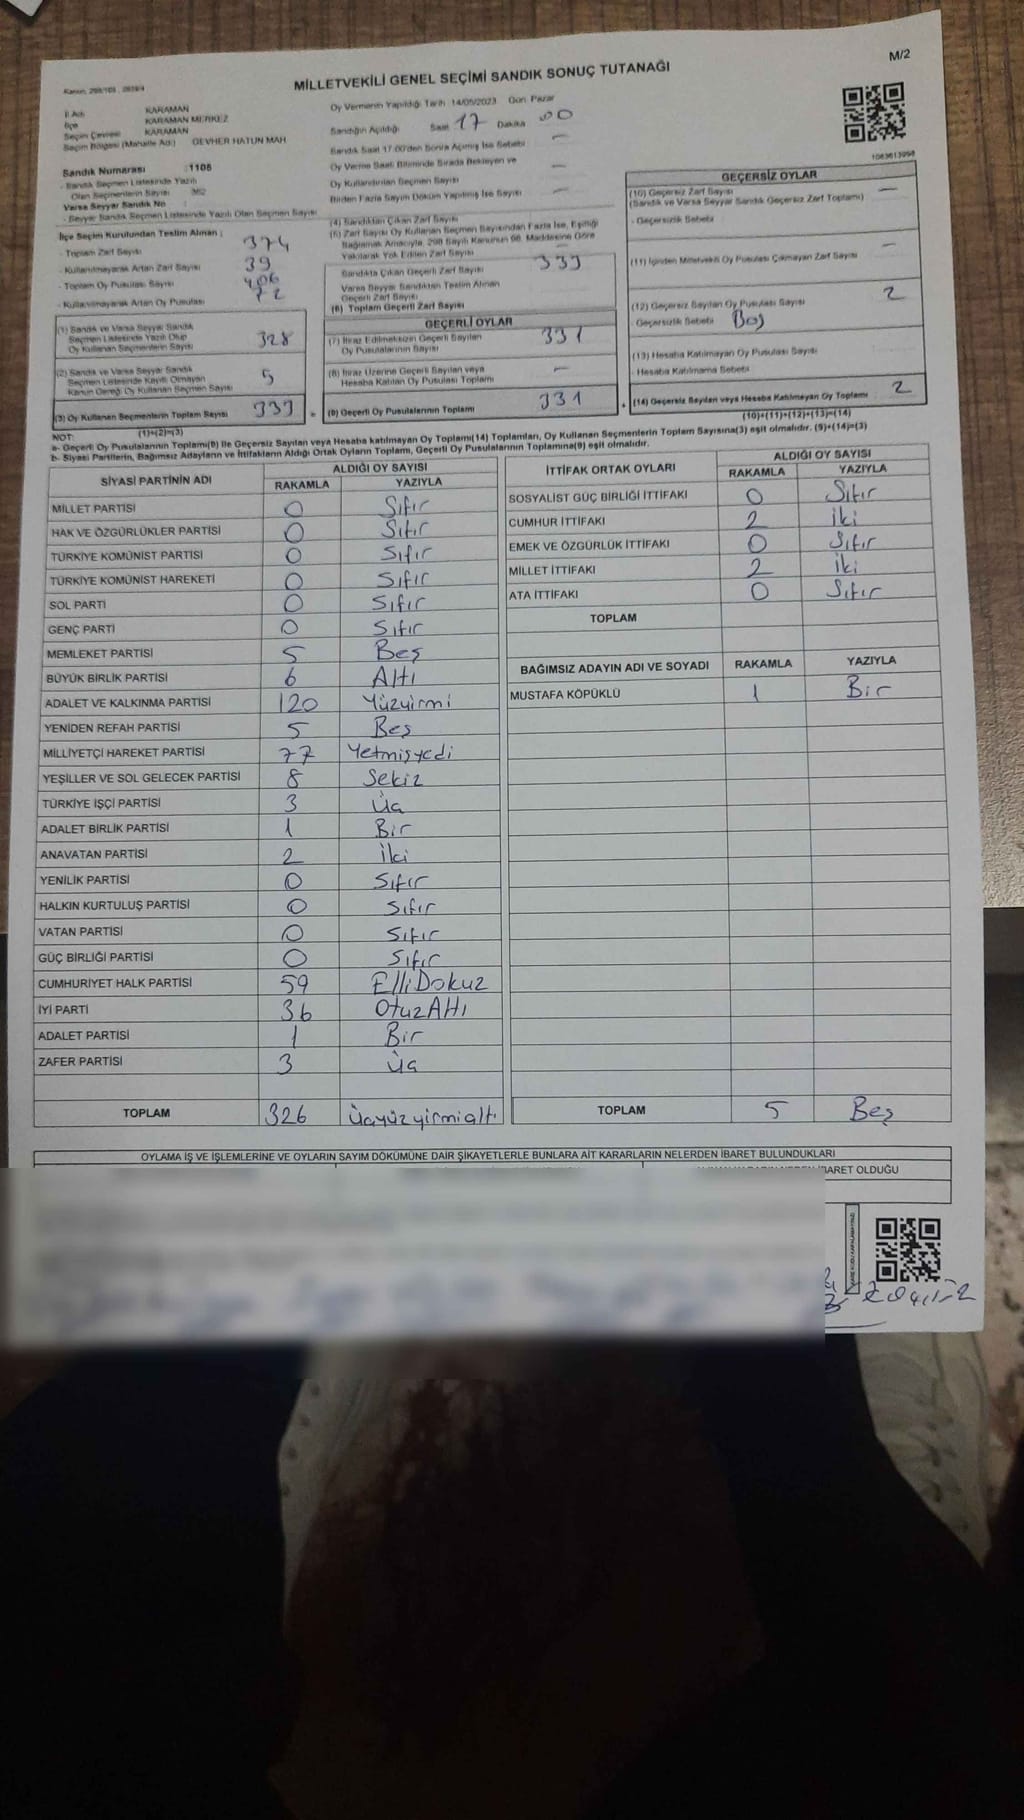 M/2
MİLLETVEKİLİ GENEL SEÇİMİ SANDIK SONUÇ TUTANAĞI
İl Adı KARAMAN
İlçe KARAMAN MERKEZ
Seçim Çevresi KARAMAN
Seçim Bölgesi (Mahalle Adı) GEVHER HATUN MAH
Sandık Numarası : 1106
- Sandık Seçmen Listesinde Yazılı
Olan Seçmenlerin Sayısı 362
Varsa Seyyar Sandık No
- Seyyar Sandık Seçmen Listesinde Yazılı Olan Seçmen Sayısı
İlçe Seçim Kurulundan Teslim Alınan :
- Toplam Zarf Sayısı 374
- Kullanılmayarak Artan Zarf Sayısı 39
- Toplam Oy Pusulası Sayısı 406
- Kullanılmayarak Artan Oy Pusulası 72
(1) Sandık ve Varsa Seyyar Sandık
Seçmen Listesinde Yazılı Olup
Oy Kullanan Seçmenlerin Sayısı 328
(2) Sandık ve Varsa Seyyar Sandık
Seçmen Listesinde Kayıtlı Olmayan
Kanun Gereği Oy Kullanan Seçmen Sayısı 5
(3) Oy Kullanan Seçmenlerin Toplam Sayısı 333
(1)+(2)=(3)
Oy Vermenin Yapıldığı Tarih 14/05/2023 Gün Pazar
Sandığın Açıldığı Saat 17 Dakika 00
Sandık Saat 17:00'den Sonra Açılmış İse Sebebi —
Oy Verme Saati Bitiminde Sırada Bekleyen ve
Oy Kullandırılan Seçmen Sayısı —
Birden Fazla Sayım Döküm Yapılmış İse Sayısı —
(4) Sandıktan Çıkan Zarf Sayısı
(5) Zarf Sayısı Oy Kullanan Seçmen Sayısından Fazla İse, Eşitliği
Sağlamak Amacıyla, 298 Sayılı Kanunun 98. Maddesine Göre
Yakılarak Yok Edilen Zarf Sayısı —
Sandıkta Çıkan Geçerli Zarf Sayısı 333
Varsa Seyyar Sandıktan Teslim Alınan
Geçerli Zarf Sayısı
(6) Toplam Geçerli Zarf Sayısı
GEÇERLİ OYLAR
(7) İtiraz Edilmeksizin Geçerli Sayılan
Oy Pusulalarının Sayısı 331
(8) İtiraz Üzerine Geçerli Sayılan veya
Hesaba Katılan Oy Pusulası Toplamı —
(9) Geçerli Oy Pusulalarının Toplamı 331
1063613998
GEÇERSİZ OYLAR
(10) Geçersiz Zarf Sayısı —
(Sandık ve Varsa Seyyar Sandık Geçersiz Zarf Toplamı)
- Geçersizlik Sebebi
(11) İçinden Milletvekili Oy Pusulası Çıkmayan Zarf Sayısı —
(12) Geçersiz Sayılan Oy Pusulası Sayısı 2
- Geçersizlik Sebebi Boş
(13) Hesaba Katılmayan Oy Pusulası Sayısı
- Hesaba Katılmama Sebebi
(14) Geçersiz Sayılan veya Hesaba Katılmayan Oy Toplamı 2
(10)+(11)+(12)+(13)=(14)
NOT:
a- Geçerli Oy Pusulalarının Toplamı(9) ile Geçersiz Sayılan veya Hesaba katılmayan Oy Toplamı(14) Toplamları, Oy Kullanan Seçmenlerin Toplam Sayısına(3) eşit olmalıdır. (9)+(14)=(3)
b- Siyasi Partilerin, Bağımsız Adayların ve İttifakların Aldığı Ortak Oyların Toplamı, Geçerli Oy Pusulalarının Toplamına(9) eşit olmalıdır.
SİYASİ PARTİNİN ADI ALDIĞI OY SAYISI
RAKAMLA YAZIYLA
MİLLET PARTİSİ 0 Sıfır
HAK VE ÖZGÜRLÜKLER PARTİSİ 0 Sıfır
TÜRKİYE KOMÜNİST PARTİSİ 0 Sıfır
TÜRKİYE KOMÜNİST HAREKETİ 0 Sıfır
SOL PARTİ 0 Sıfır
GENÇ PARTİ 0 Sıfır
MEMLEKET PARTİSİ 5 Beş
BÜYÜK BİRLİK PARTİSİ 6 Altı
ADALET VE KALKINMA PARTİSİ 120 Yüzyirmi
YENİDEN REFAH PARTİSİ 5 Beş
MİLLİYETÇİ HAREKET PARTİSİ 77 Yetmişyedi
YEŞİLLER VE SOL GELECEK PARTİSİ 8 Sekiz
TÜRKİYE İŞÇİ PARTİSİ 3 Üç
ADALET BİRLİK PARTİSİ 1 Bir
ANAVATAN PARTİSİ 2 İki
YENİLİK PARTİSİ 0 Sıfır
HALKIN KURTULUŞ PARTİSİ 0 Sıfır
VATAN PARTİSİ 0 Sıfır
GÜÇ BİRLİĞİ PARTİSİ 0 Sıfır
CUMHURİYET HALK PARTİSİ 59 ElliDokuz
İYİ PARTİ 36 OtuzAltı
ADALET PARTİSİ 1 Bir
ZAFER PARTİSİ 3 Üç
TOPLAM 326 Üçyüzyirmialtı
İTTİFAK ORTAK OYLARI ALDIĞI OY SAYISI
RAKAMLA YAZIYLA
SOSYALİST GÜÇ BİRLİĞİ İTTİFAKI 0 Sıfır
CUMHUR İTTİFAKI 2 iki
EMEK VE ÖZGÜRLÜK İTTİFAKI 0 Sıfır
MİLLET İTTİFAKI 2 iki
ATA İTTİFAKI 0 Sıfır
TOPLAM
BAĞIMSIZ ADAYIN ADI VE SOYADI RAKAMLA YAZIYLA
MUSTAFA KÖPÜKLÜ 1 Bir
TOPLAM 5 Beş
OYLAMA İŞ VE İŞLEMLERİNE VE OYLARIN SAYIM DÖKÜMÜNE DAİR ŞİKAYETLERLE BUNLARA AİT KARARLARIN NELERDEN İBARET BULUNDUKLARI
İBARET OLDUĞU